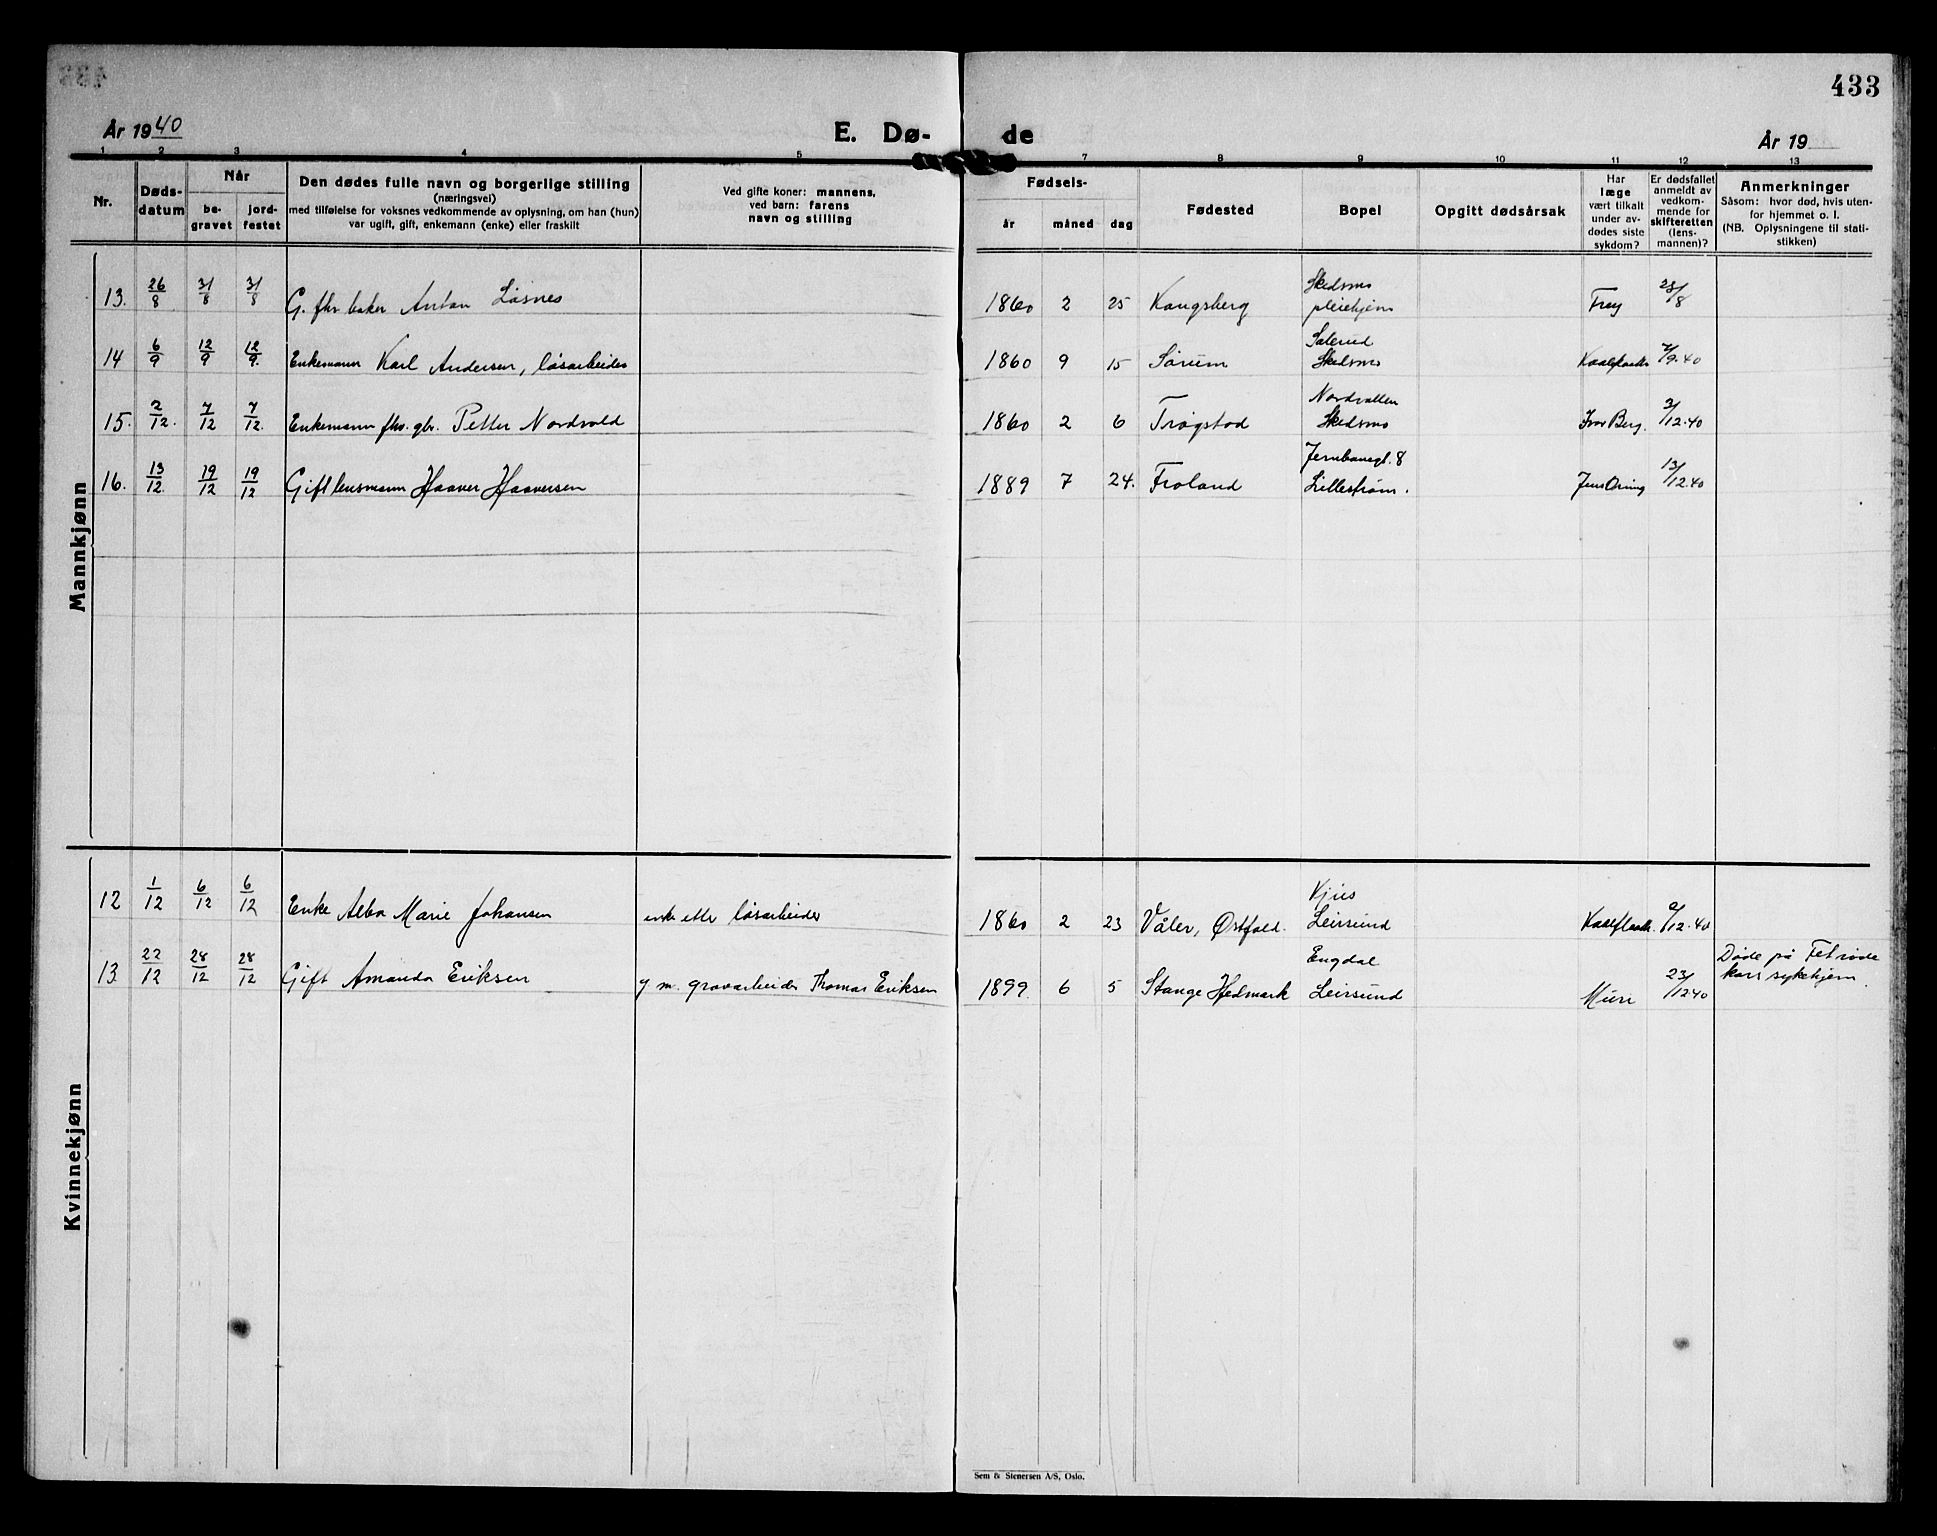 433
År 1940
E. Dø-
de
År 19
1 2 3 4 5 7 8 9 10 11 12 13
Nr.
Døds-
datum
Når
be-
gravet
jord-
festet
Den dødes fulle navn og borgerlige stilling
(næringsvei)
med tilføielse for voksnes vedkommende av oplysning, om han (hun)
var ugift, gift, enkemann (enke) eller fraskilt
Ved gifte koner: mannens,
ved barn: farens
navn og stilling
Fødsels-
år måned dag
Fødested
Bopel
Opgitt dødsårsak
Har
læge
vært tilkalt
under av-
dødes siste
sykdom?
Er dødsfallet
anmeldt av
vedkom-
mende for
skifteretten
(lens-
mannen)?
Anmerkninger
Såsom: hvor død, hvis uten-
for hjemmet o. l.
(NB. Oplysningene til stati-
stikken)
Mannkjønn
13. 26/8 31/8 31/8 G. fhv baker Anton Løsnes 1860 2 25 Kongsberg Skedsmo
pleiehjem Frey 28/8
14 6/9 12/9 12/9. Enkemann Karl Andersen, løsarbeider 1860 9 15 Sørum Salerud
Skedsmo 7/9.40
15. 2/12. 7/12 7/12. Enkemann fhv. gbr. Petter Nordvold 1860 2 6 Trøgstad Nordvollen
Skedsmo Ivar Berg. 3/12.40
16. 13/12. 19/12 19/12 Gift lensmann Haaver Haaversen 1889 7 24. Froland Jernbanegt. 8
Lillestrøm. 13/12.40
Kvinnekjønn
12 1/12 6/12 6/12 Enke Alba Marie Johansen enke etter løsarbeider 1860 2 23 Våler, Østfold.
Leirsund 2/12.40
13 22/12 28/12 28/12 Gift Amanda Eriksen g m. gravarbeider Thomas Eriksen 1899. 6 5 Stange Hedmark Engdal
Leirsund Müri 23/12.40 Døde på Fet røde
kors sykehjem.
Sem & Stenersen A/S, Oslo.